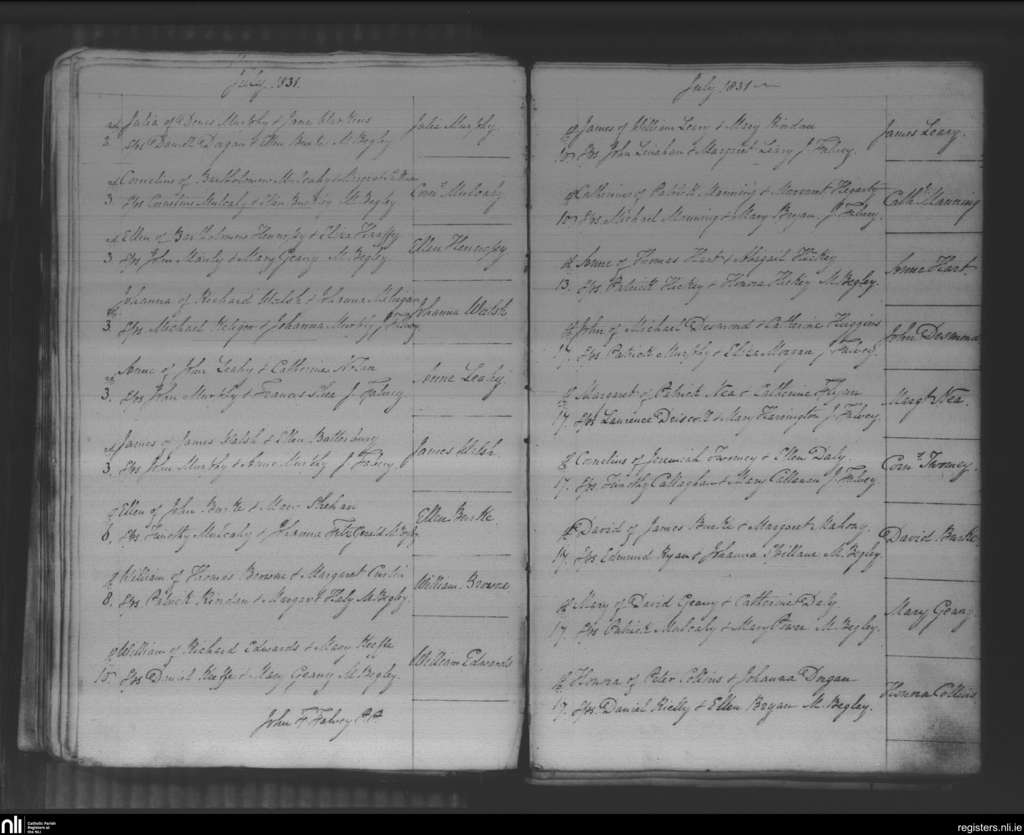 July 1831
Julia of Denis Murphy & Jane Harkins Julia Murphy
2 Sps Daniel Dugan & Ellen Burke M. Begley
Cornelius of Bartholomew Mulcahy & Corns. Mulcahy
3 Sps Cornelius Mulcahy & Ellen M. Begley
Ellen of Bartholomew Hennessy & Eliza Heaffy Ellen Hennessy
3 Sps John Manly & Mary Geany M. Begley
Johanna of Richard Walsh & Johanna Milligan Johanna Walsh
3 Sps Michael & Johanna Murphy J. Falvey
Anne of John Leahy & Catherine Nolan Anne Leahy
3. Sps John Murphy & Frances Shea J. Falvey.
James of James Walsh & Ellen Battersbury James Walsh
3 Sps John Murphy & Anne Murphy J. Falvey
Ellen of John Burke & Mary Shehan Ellen Burke
6. Sps Timothy Mulcahy & Johanna Fitzgerald M. Begley
William of Thomas Browne & Margaret Curtin William Browne
8. Sps Patrick Rindan & Margaret Haly M. Begley.
William of Richard Edwards & Mary Keeffe William Edwards
15. Sps Daniel Keeffe & Mary Geany M. Begley.
John F Falvey
July 1831
James of William Leary & Mary Rindan James Leary.
10 Sps John Linahan & Margaret Leary J. Falvey.
Catherine of Patrick Manning & Margaret Hegarty Cath. Manning
10 Sps Michael Manning & Mary Bryan J. Falvey.
Anne of Thomas Hart & Abigail Hickey Anne Hart
13. Sps Patrick Hickey & Honora Hickey M. Begley.
John of Michael Desmond & Catherine Huggins John Desmond
17. Sps Patrick Murphy & Eliza Morgan J. Falvey.
Margaret of Patrick Nea & Catherine Flynn Margt. Nea.
17. Sps Laurence Driscoll & Mary Harrington J. Falvey.
Cornelius of Jeremiah Twomey & Ellen Daly Corns. Twomey.
17. Sps Timothy Callaghan & Mary Callanan J. Falvey
David of James Burke & Margaret Mahony. David Burke.
17. Sps Edmund Ryan & Johanna Shillane M. Begley
Mary of David Geany & Catherine Daly Mary Geany
17 Sps Patrick Mulcahy & Mary Power M. Begley.
Honora of Peter Collins & Johanna Dorgan Honora Collins
17. Sps. Daniel Rielly & Ellen Bryan M. Begley.
nli Catholic Parish
Registers at
the NLI
registers.nli.ie